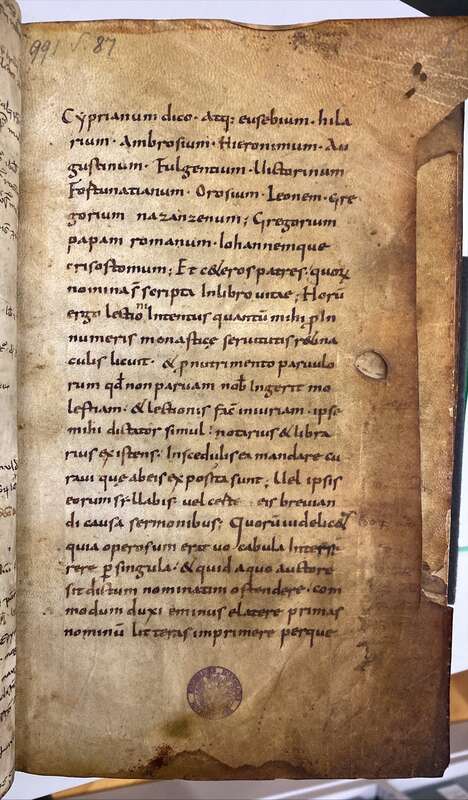 991 f. 87
Cyprianum dico · Atq; eusebium · hila
rium · Ambrosium · Hieronimum · Au
gustinum · Fulgentium · Uictorinum
Fortunatianum · Orosium · Leonem · Gre
gorium nazanzenum ; Gregorium
papam romanum · Iohannemque
crisostomum ; Et c&eros patres · quorꝝ
nomina s̄ scripta In libro uitae ; Horū
ergo lectioni Intentus quantū mihi ꝓ In
numeris monasticę seruitutis r&ina
culis licuit · & ꝓ nutrimento paruulo
rum qđ non paruam nob̄ Ingerit mo
lestiam · & lectionis fac̄ iniuriam · ipse
mihi dictator simul · notarius & libra
rius existens · In scedulis ea mandare cu
raui que ab eis exposita sunt ; Uel ipsis
eorum syllabis uel certe eis breuian
di causa sermonibus ; Quorū uidelic&
quia operosum erat uocabula Interse
rere ꝑ singula · & quid a quo auctore
sit dictum nominatim ostendere · com
modum duxi eminus e latere primas
nominū litteras imprimere perque